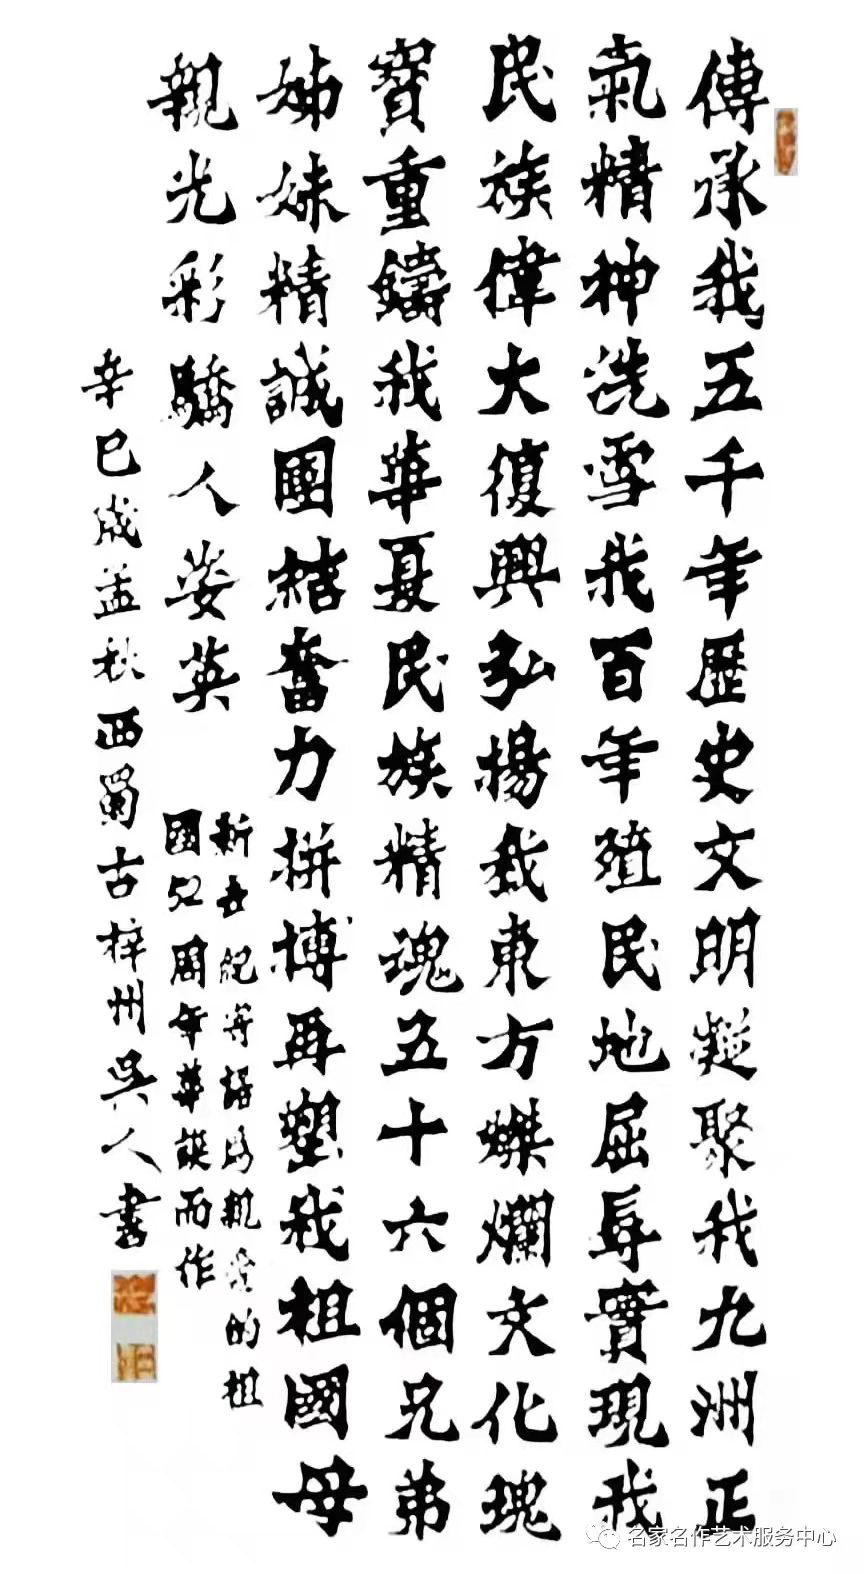 傳承我五千年歷史文明凝聚我九洲正
氣精神洗雪我百年殖民地屈辱實現我
民族偉大復興弘揚我東方燦爛文化瑰
寶重鑄我華夏民族精魂五十六個兄弟
姊妹精誠團結奮力拼搏再塑我祖國母
親光彩驕人姿英
新世紀寄語為親愛的祖
國52周年華誕而作
辛巳歲孟秋西蜀古梓州吳人書
名家名作艺术服务中心